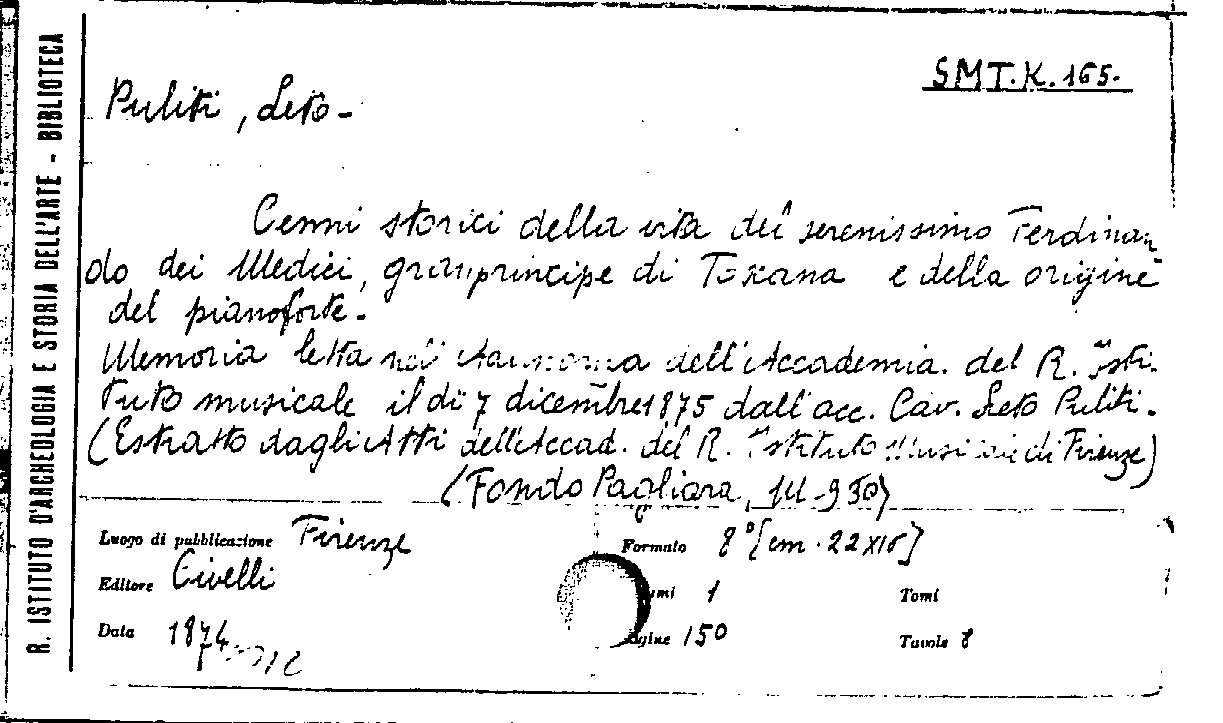 R. ISTITUTO D'ARCHEOLOGIA E STORIA DELL'ARTE - BIBLIOTECA
SMT.K.165.
Puliti, Leto-
Cenni storici della vita del serenissimo Ferdinan
do dei Medici, granprincipe di Toscana e della origine
del pianoforte.-
Memoria letta nell' dell'Accademia del R. Isti-
tuto musicale il dì 7 dicembre 1875 dall'acc. Cav. Leto Puliti.
(Estratto dagli Atti dell'Accad. del R. Istituto Musicale di Firenze)
(Fondo Pagliara, 14-930)
Luogo di pubblicazione Firenze
Formato 8° [cm. 22x16]
Editore Civelli
umi 1
Tomi
Data 1874
agine 150
Tavole 8